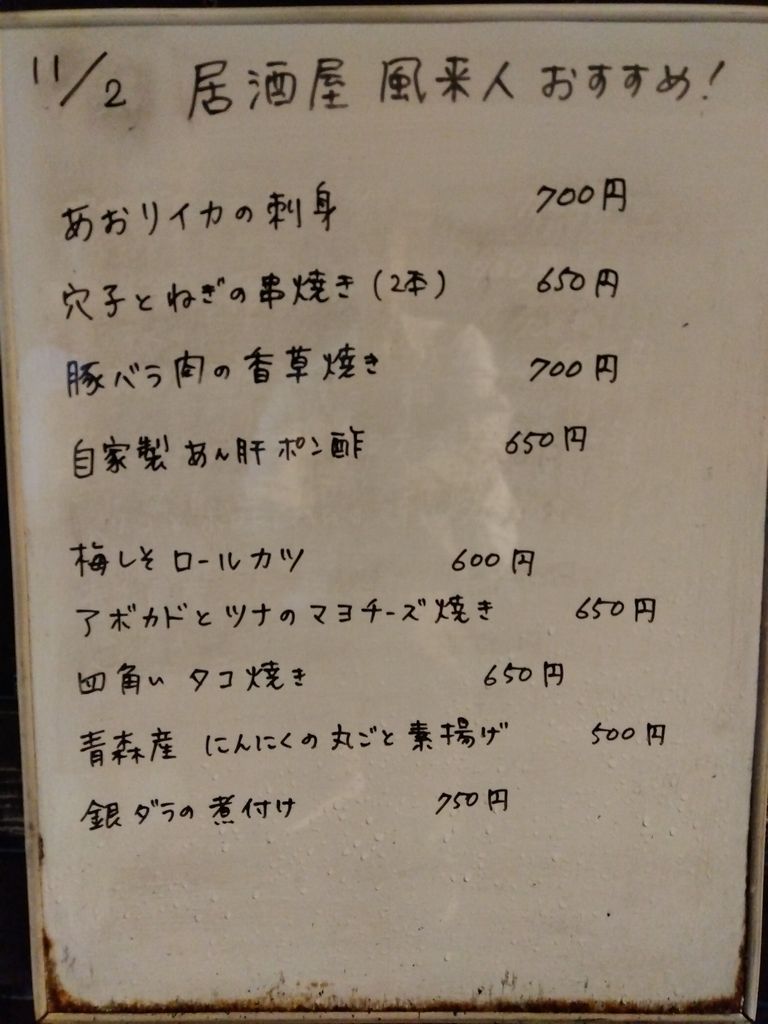 11/2 居酒屋 風来人 おすすめ!
あおりイカの刺身 700円
穴子とねぎの串焼き(2本) 650円
豚バラ肉の香草焼き 700円
自家製 あん肝ポン酢 650円
梅しそロールカツ 600円
アボカドとツナのマヨチーズ焼き 650円
四角い タコ焼き 650円
青森産 にんにくの丸ごと素揚げ 500円
銀ダラの煮付け 750円